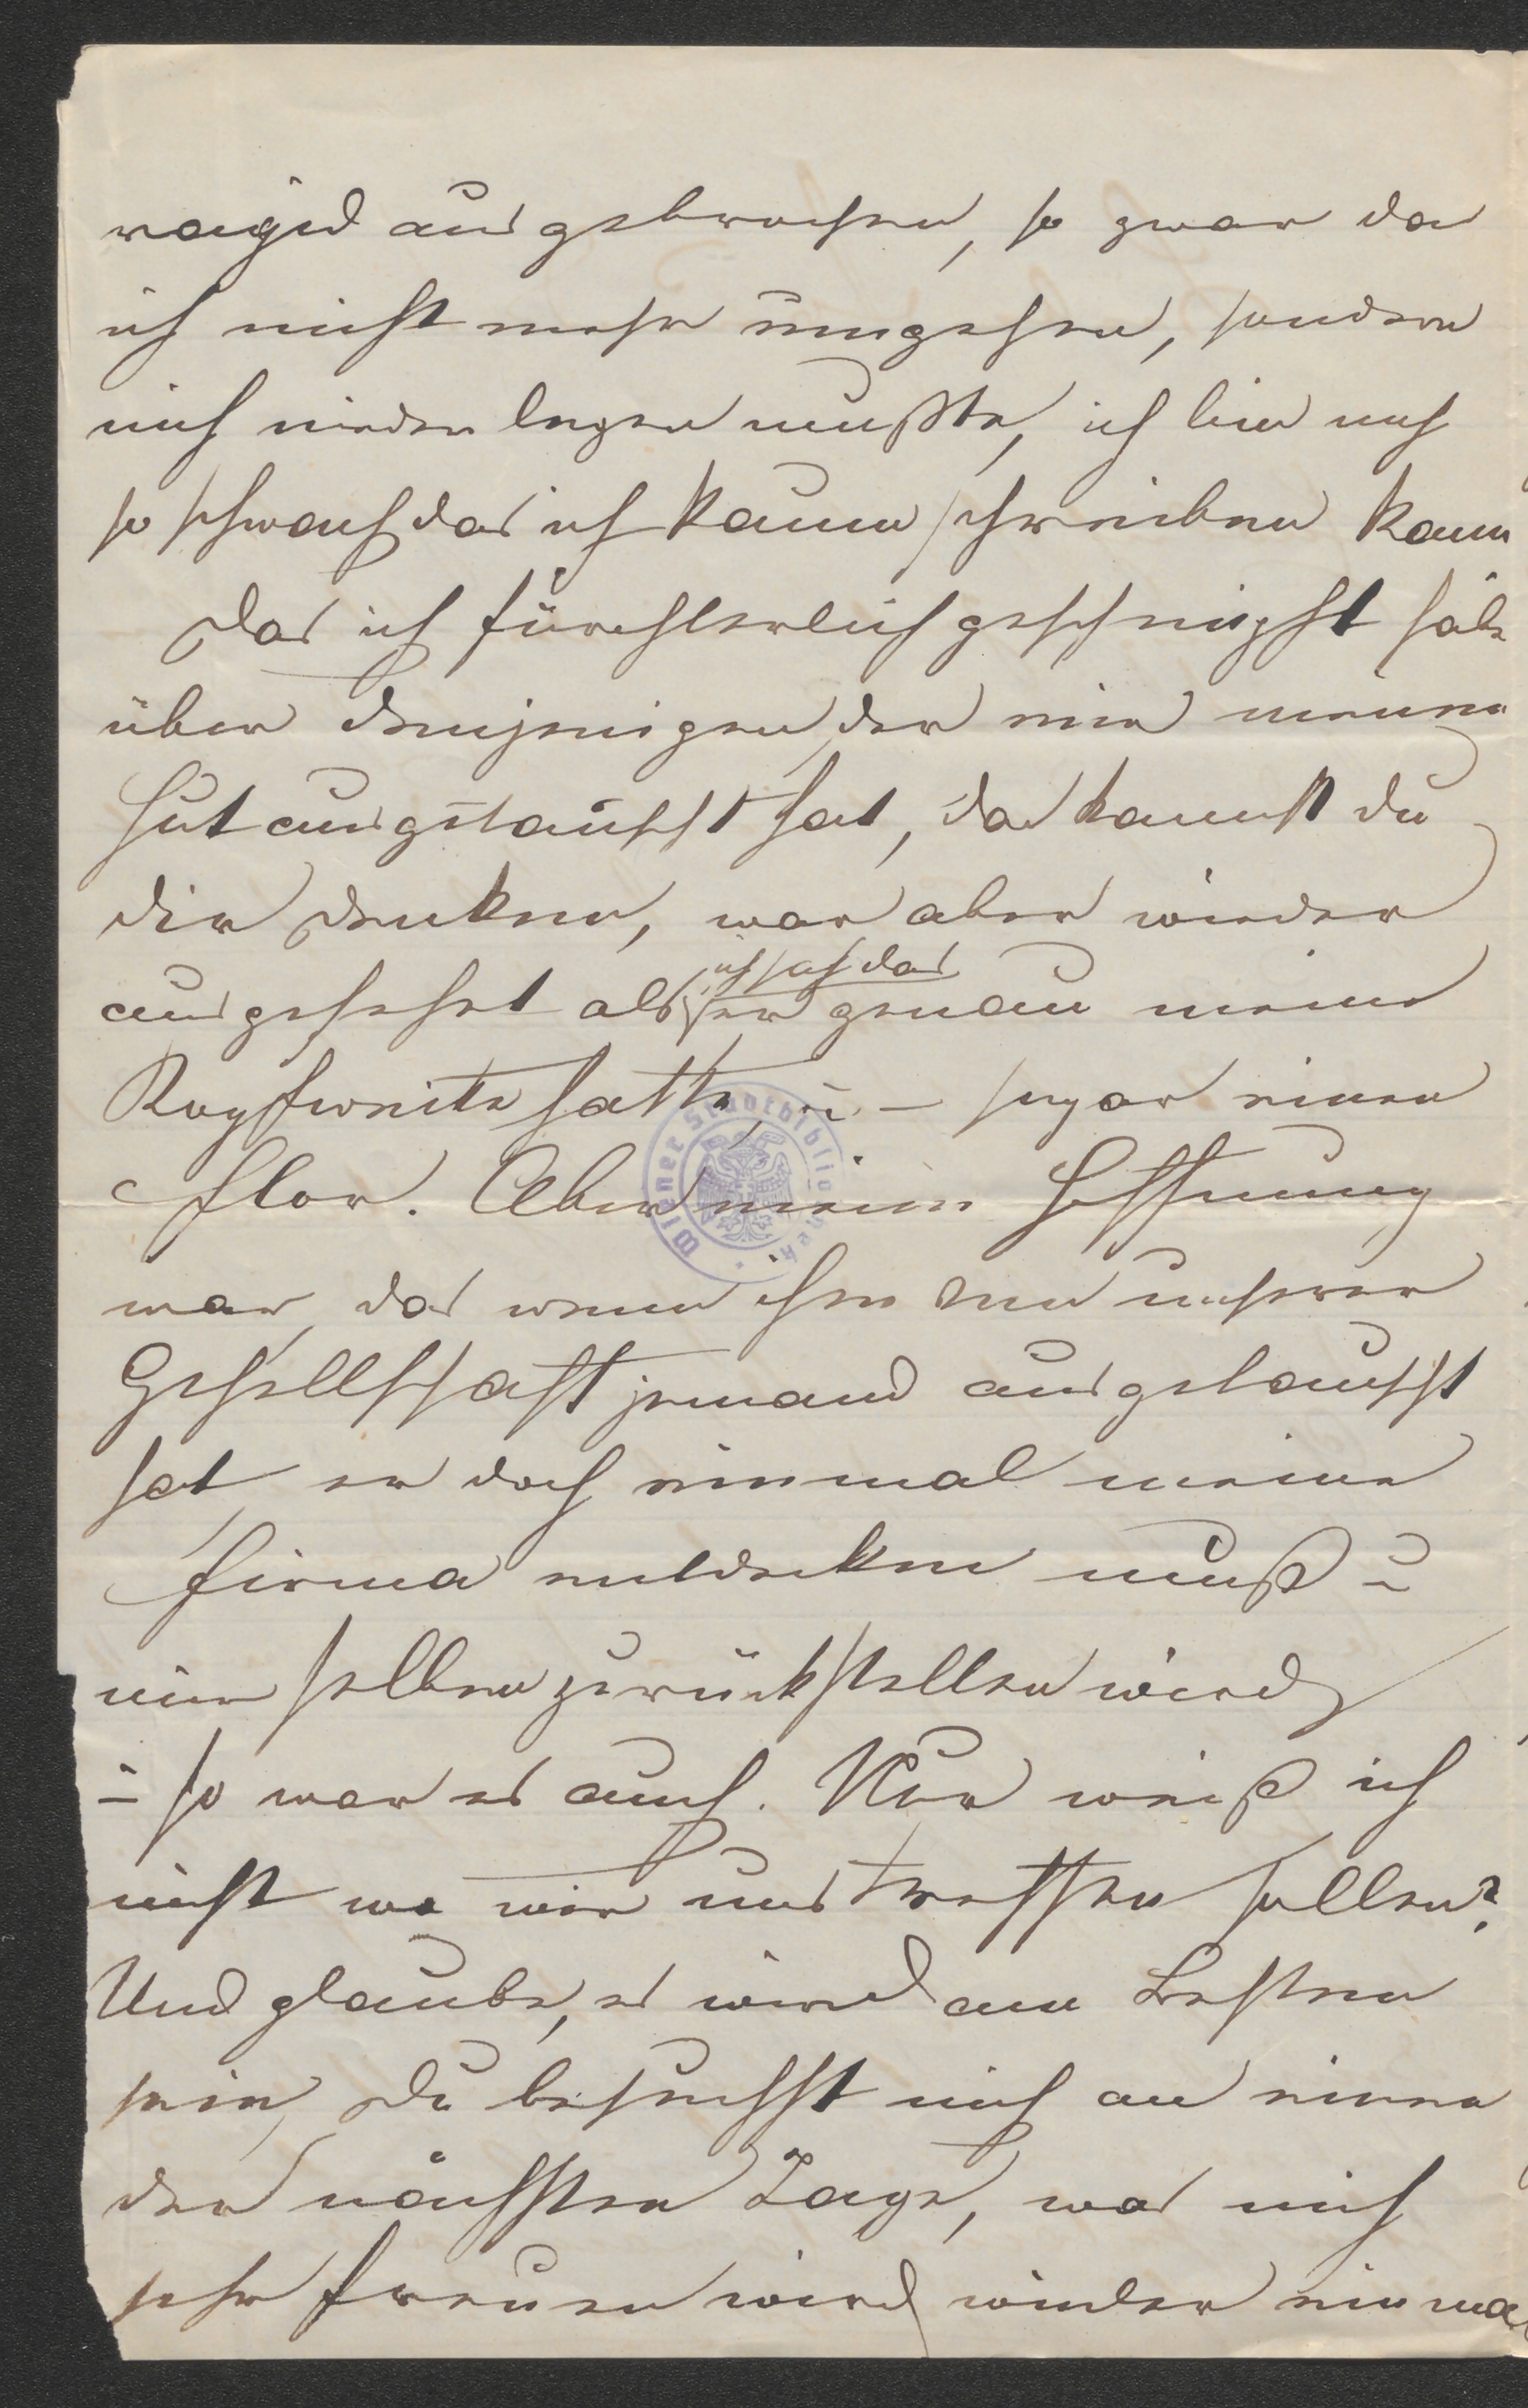 rapid ausgebrochen, so zwar das
ich nicht mehr umgehen, sondern
mich nieder legen mußte, ich bin noch
so schwach das ich kaum schreiben kann
Das ich fürchterlich geschimpft habe
über demjenigen der mir meinen
Hut ausgetauscht hat, das kannst du
dir denken, war aber wieder
ausgesöhnt als ich sah das er genau meine
Kopfweite hatte, u. – sogar einen
Flor. Aber meine Hoffnung
war, das wenn ihn von unserer
Gesellschaft jemand ausgetauscht
hat er doch einmal meine
Firma entdecken muß u
mir selben zurückstellen wird
u so war es auch. Nur weiß ich
nicht wo wir uns treffen sollen?
Und glaube, es wird am Besten
sein, Du besuchst mich an einen
der nächsten Tage, was mich
sehr freuen wird wieder einmal
Wiener Stadtbibliothek